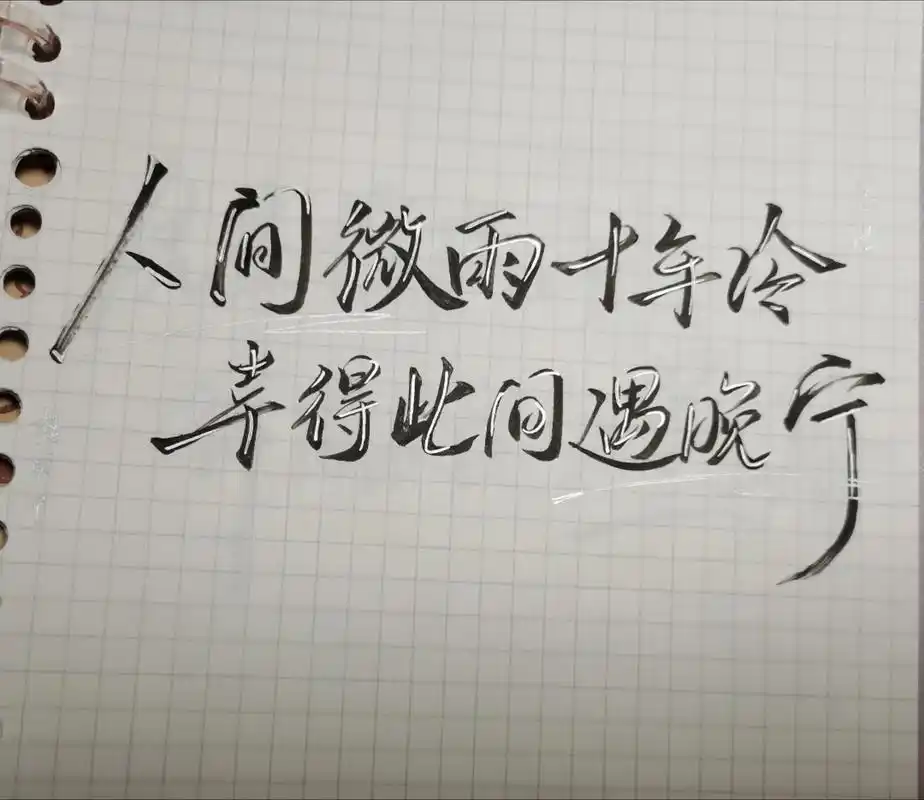 人间微雨十年冷
幸得此间遇晚宁